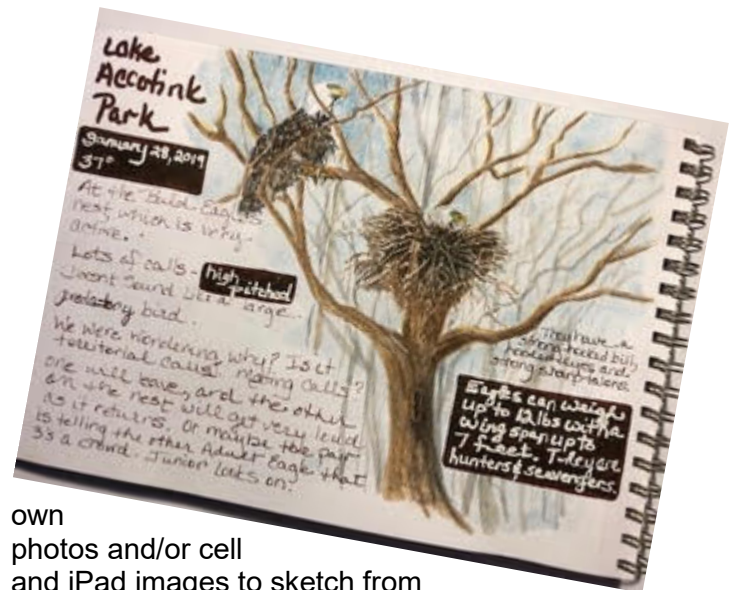 Lake
Accotink
Park
January 28, 2019
37°
At the Bald Eagles
nest, which is very
active.
Lots of calls - high pitched
doesnt sound like a large
predatory bird.
We were wondering why? Is it
territorial calls? mating calls?
one will leave, and the other
on the nest will get very loud
as it returns. Or maybe the pair
is telling the other Adult Eagle that
3's a crowd. Junior looks on.
They have a
strong hooked bill,
hooded eyes and
strong sharp talons
Eagles can weigh
up to 12 lbs with a
wing span up to
7 feet. They are
hunters & scavengers.
own
photos and/or cell
and iPad images to sketch from